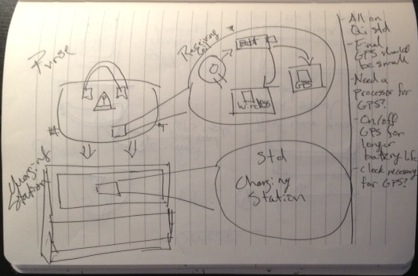 Purse
Receiving
Coil
Batt
GPS
Wireless
Charging
Station
Std
Charging
Station
- All on
- Find
GPS should
be small
- Need a
processor for
GPS?
- On/off
GPS for
longer
battery life
- Clock necessary
for GPS?